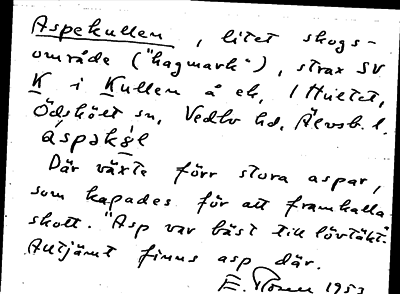 Aspekullen, litet skogs-
område ("hagmark"), strax SV
K i Kullen å ek, 1 Hultet,
Ödskölt sn, Vedbo hd, Älvsb. l.
aspəkəl
Där växte förr stora aspar,
som kapades för att framkalla
skott. "Asp var bäst till lövtäkt."
Alltjämt finns asp där.
E. 1953